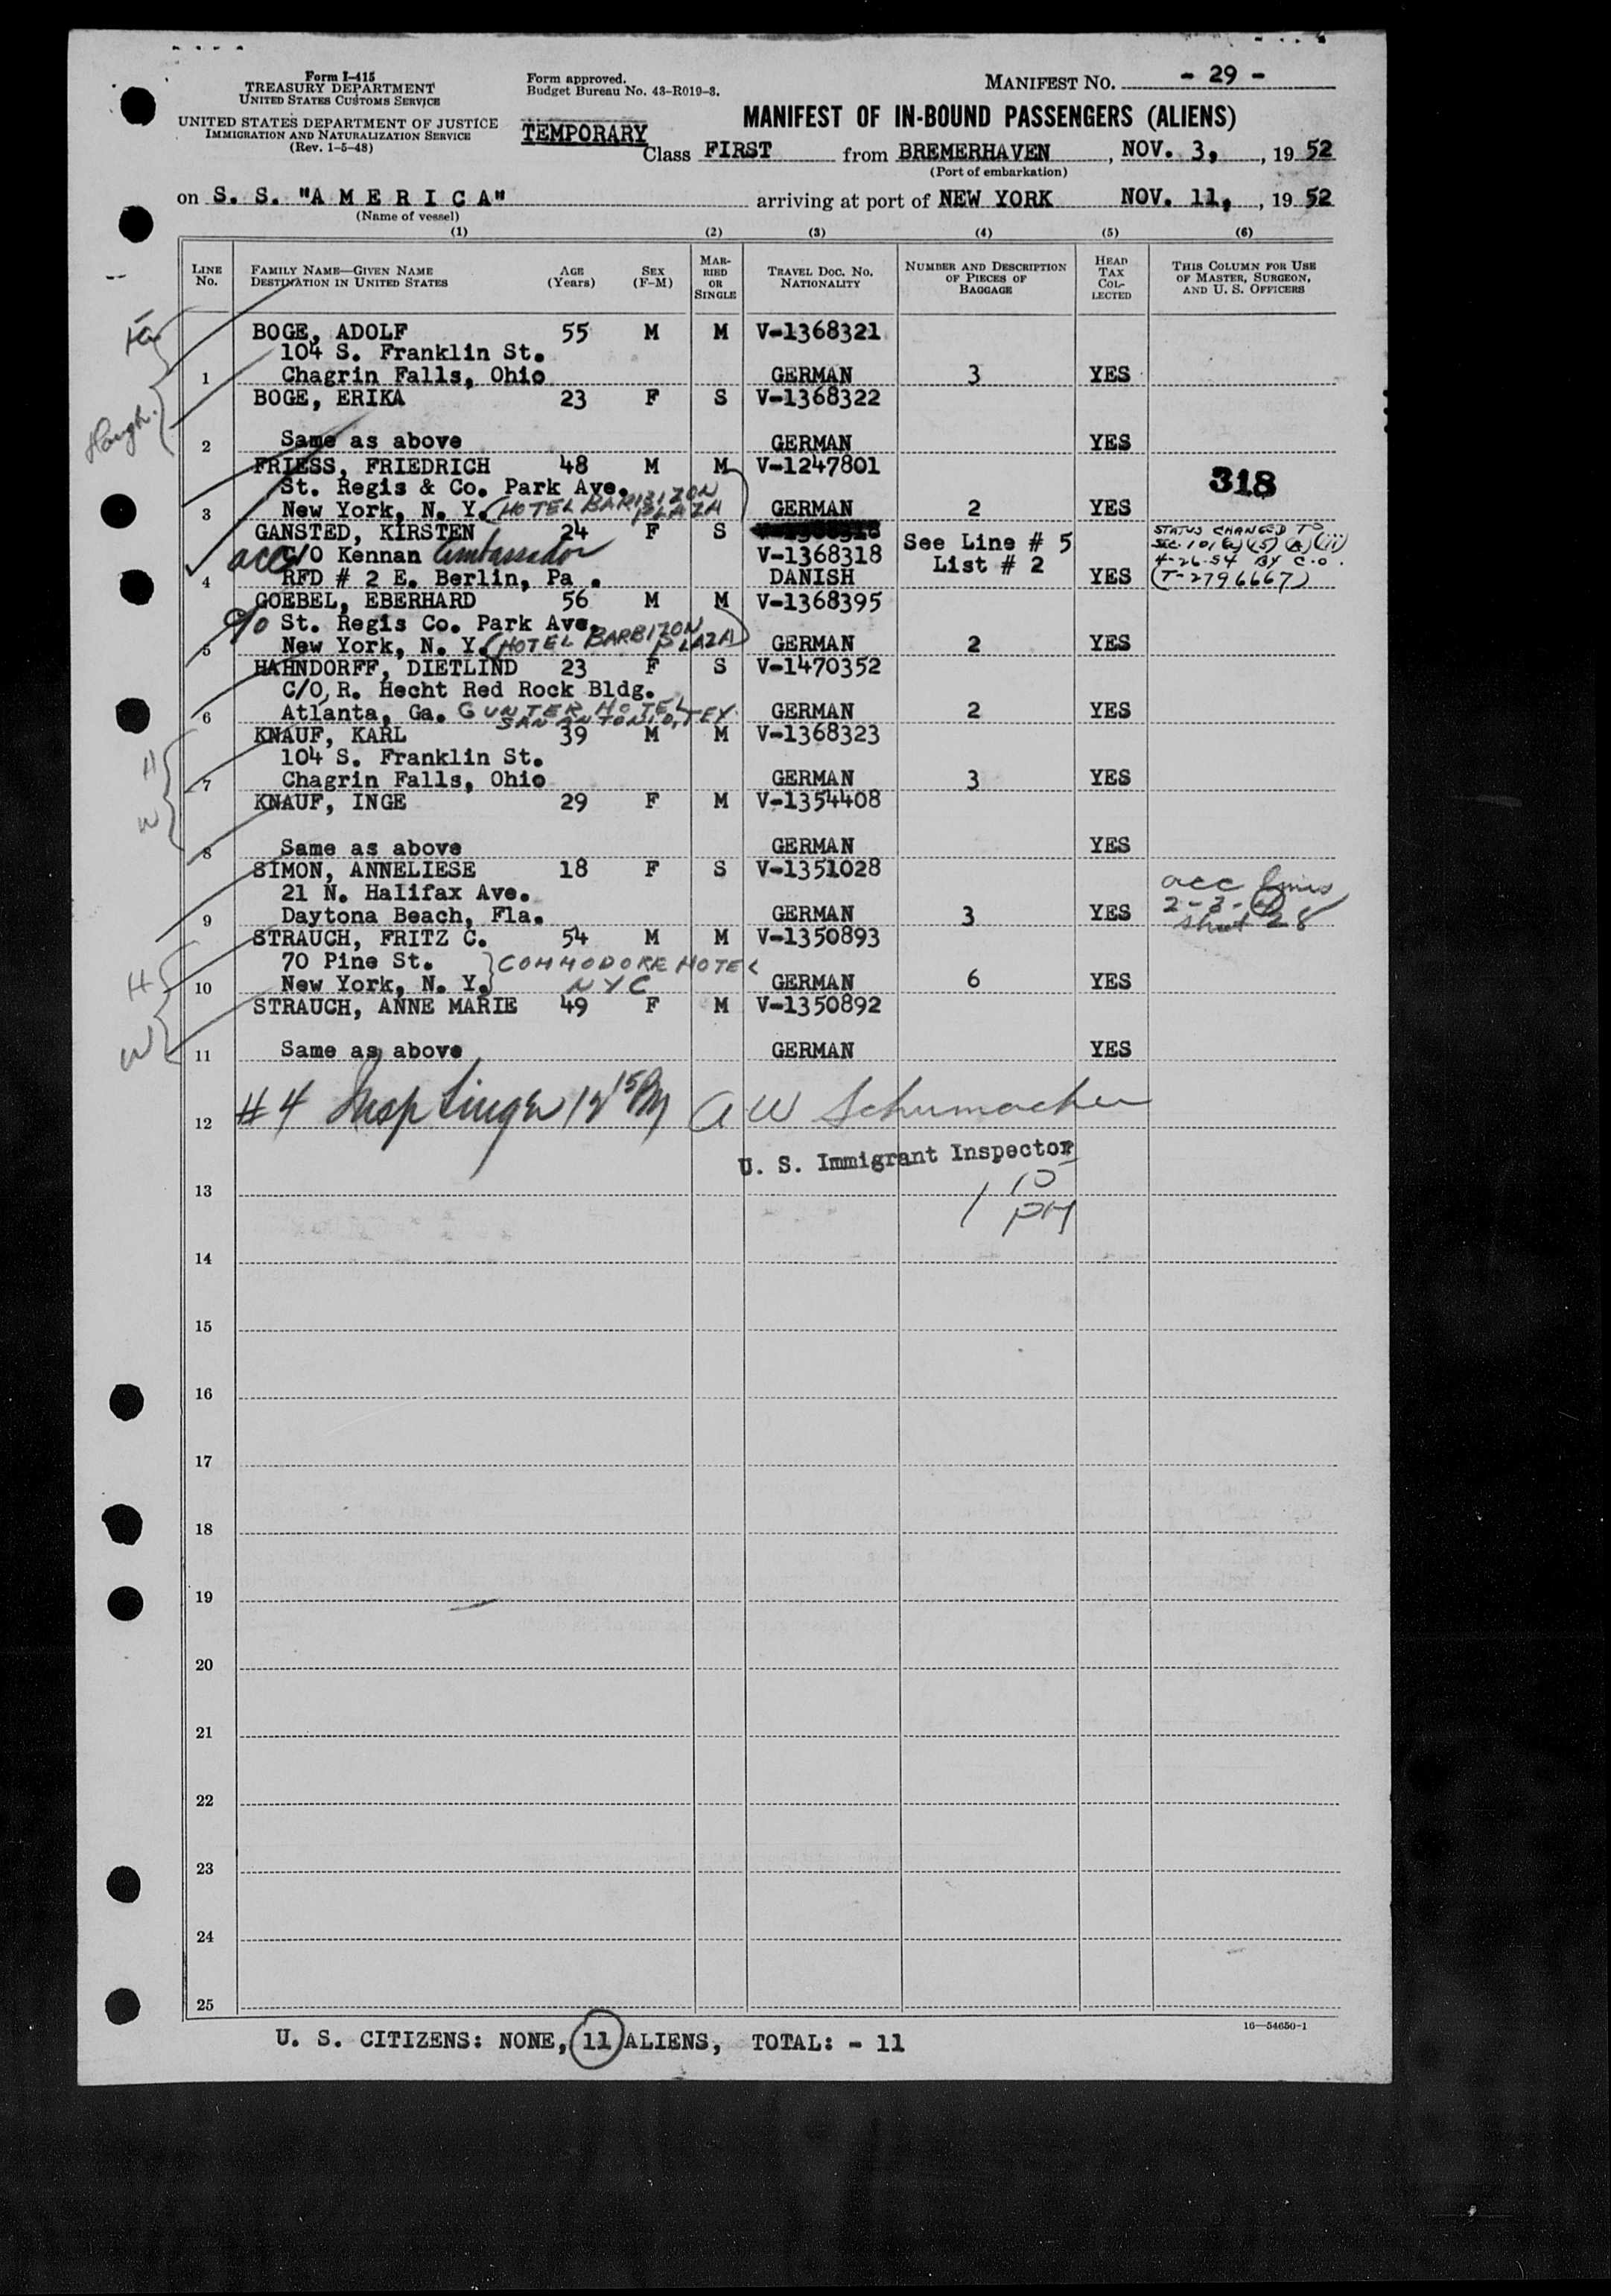 Form I-415
TREASURY DEPARTMENT
UNITED STATES CUSTOMS SERVICE
UNITED STATES DEPARTMENT OF JUSTICE
IMMIGRATION AND NATURALIZATION SERVICE
(Rev. 1-5-48)
Form approved.
Budget Bureau No. 43-R019-3.
TEMPORARY
MANIFEST NO. - 29 -
MANIFEST OF IN-BOUND PASSENGERS (ALIENS)
Class FIRST from BREMERHAVEN, NOV. 3, , 19 52
(Port of embarkation)
on S. S. "A M E R I C A" arriving at port of NEW YORK NOV. 11, , 19 52
(Name of vessel)
(1) (2) (3) (4) (5) (6)
LINE No. FAMILY NAME—GIVEN NAME DESTINATION IN UNITED STATES AGE (Years) SEX (F-M) MARRIED OR SINGLE TRAVEL DOC. NO. NATIONALITY NUMBER AND DESCRIPTION OF PIECES OF BAGGAGE HEAD TAX COLLECTED THIS COLUMN FOR USE OF MASTER, SURGEON, AND U. S. OFFICERS
BOGE, ADOLF 55 M M V-1368321
104 S. Franklin St.
1 Chagrin Falls, Ohio GERMAN 3 YES
BOGE, ERIKA 23 F S V-1368322
2 Same as above GERMAN YES
FRIESS, FRIEDRICH 48 M M V-1247801
St. Regis & Co. Park Ave. 318
3 New York, N. Y. (HOTEL BARBIZON PLAZA GERMAN 2 YES
GANSTED, KIRSTEN 24 F S See Line # 5 STATUS CHANGED TO
acc C/O Kennan Ambassador V-1368318 List # 2 SEC. 101(a)(15)(A)(iii)
4 RFD # 2 E. Berlin, Pa . DANISH YES 4-26-54 BY C.O.
(T-2796667)
GOEBEL, EBERHARD 56 M M V-1368395
c/o St. Regis Co. Park Ave.
5 New York, N. Y. (HOTEL BARBIZON PLAZA) GERMAN 2 YES
HAHNDORFF, DIETLIND 23 F S V-1470352
C/O R. Hecht Red Rock Bldg.
6 Atlanta, Ga. GUNTER HOTEL SAN ANTONIO, TEX. GERMAN 2 YES
KNAUF, KARL 39 M M V-1368323
104 S. Franklin St.
H 7 Chagrin Falls, Ohio GERMAN 3 YES
KNAUF, INGE 29 F M V-1354408
W 8 Same as above GERMAN YES
SIMON, ANNELIESE 18 F S V-1351028
21 N. Halifax Ave. acc lines
9 Daytona Beach, Fla. GERMAN 3 YES 2-3-4 sheet 28
STRAUCH, FRITZ C. 54 M M V-1350893
70 Pine St. COMMODORE HOTEL
H 10 New York, N. Y. NYC GERMAN 6 YES
STRAUCH, ANNE MARIE 49 F M V-1350892
W 11 Same as above GERMAN YES
12 #4 Insp Singer 12 15 PM A W Schumacher
U. S. Immigrant Inspector
13 1 15 PM
14
15
16
17
18
19
20
21
22
23
24
25
16—54650-1
U. S. CITIZENS: NONE, 11 ALIENS, TOTAL: - 11